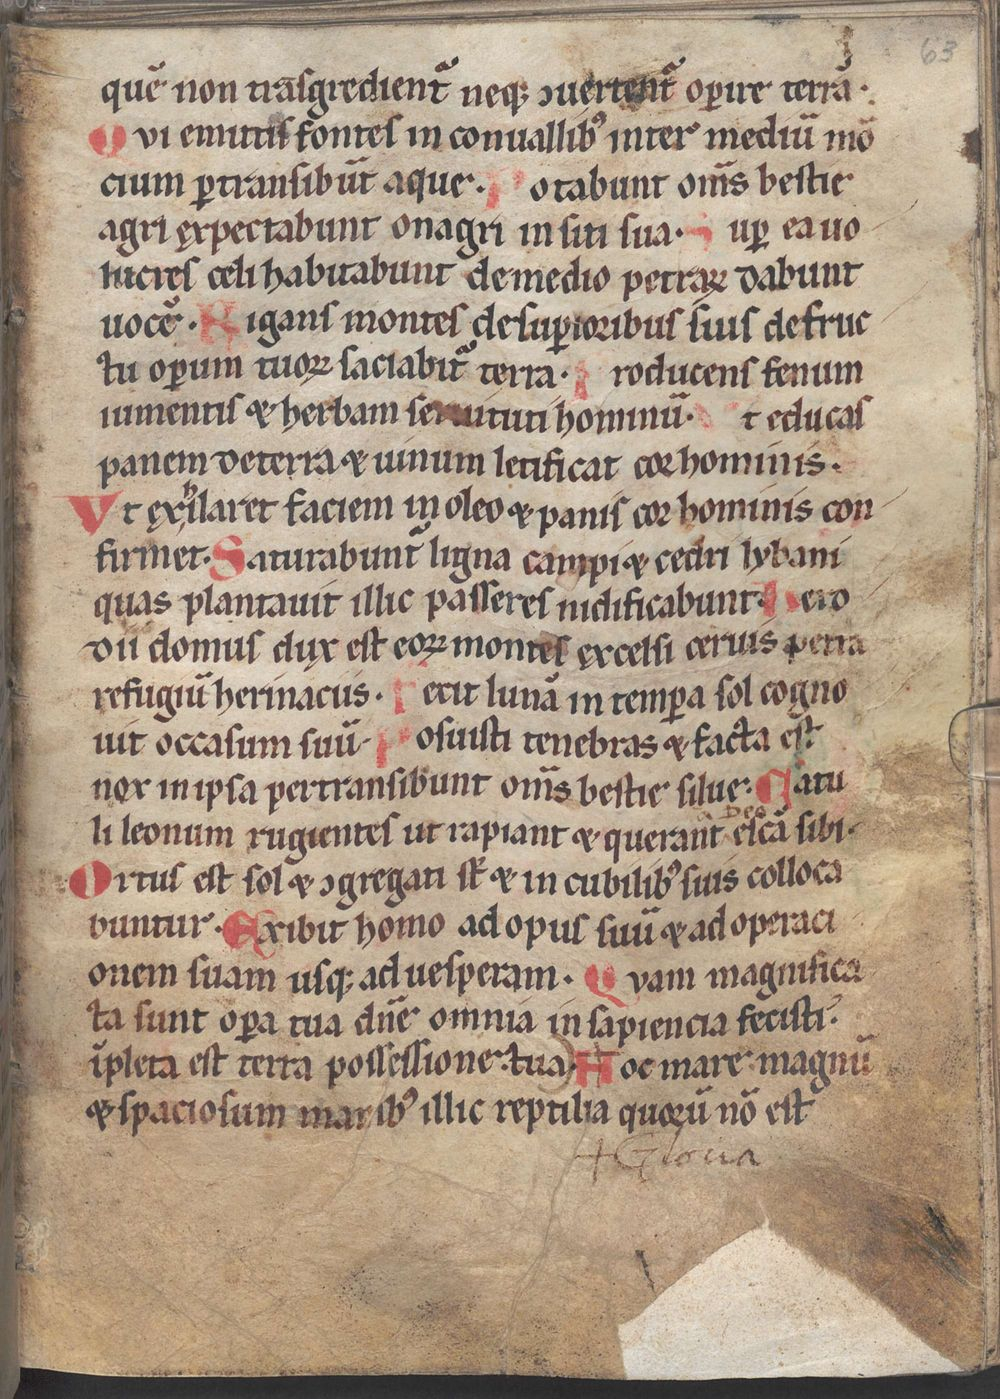 63
quē non trāsgredient᷑ neq; ꝯuertent᷑ oꝑire terrā·
Qvi emittis fontes in conuallib᷒ inter mediū mō
cium ꝑtransibūt aque· Potabunt om̄s bestie
agri expectabunt onagri in siti sua· Suꝑ ea uo
lucres celi habitabunt de medio petraꝝ dabunt
uocē· Rigans montes de suꝑioribus suis de fruc
tu oꝑum tuoꝝ saciabit᷑ terra· Producens fenum
iumentis ⁊ herbam seruituti hominū· Vt educas
panem de terra ⁊ uinum letificat cor hominis·
Vt exhilaret faciem in oleo ⁊ panis cor hominis con
firmet· Saturabunt᷑ ligna campi ⁊ cedri lybani
quas plantauit illic passeres nidificabunt· Hero
dii domus dux est eoꝝ montes excelsi ceruis petra
refugiū herinaciis· Fecit lunā in temꝑa sol cogno
uit occasum suū· Posuisti tenebras ⁊ facta est
nox in ipsa pertransibunt om̄s bestie silue· Catu
a Deo
li leonum rugientes ut rapiant ⁊ querant escā sibi·
Ortus est sol ⁊ ꝯgregati st̄ ⁊ in cubilib᷒ suis colloca
buntur· Exibit homo ad opus suū ⁊ ad operaci
onem suam usq; ad uesperam· Qvam magnifica
ta sunt oꝑa tua dn̄e omnia in sapiencia fecisti·
īpleta est terra possessione tua· Hoc mare magnū
⁊ spaciosum manib᷒ illic reptilia quoꝝū nō est
+ Gloria